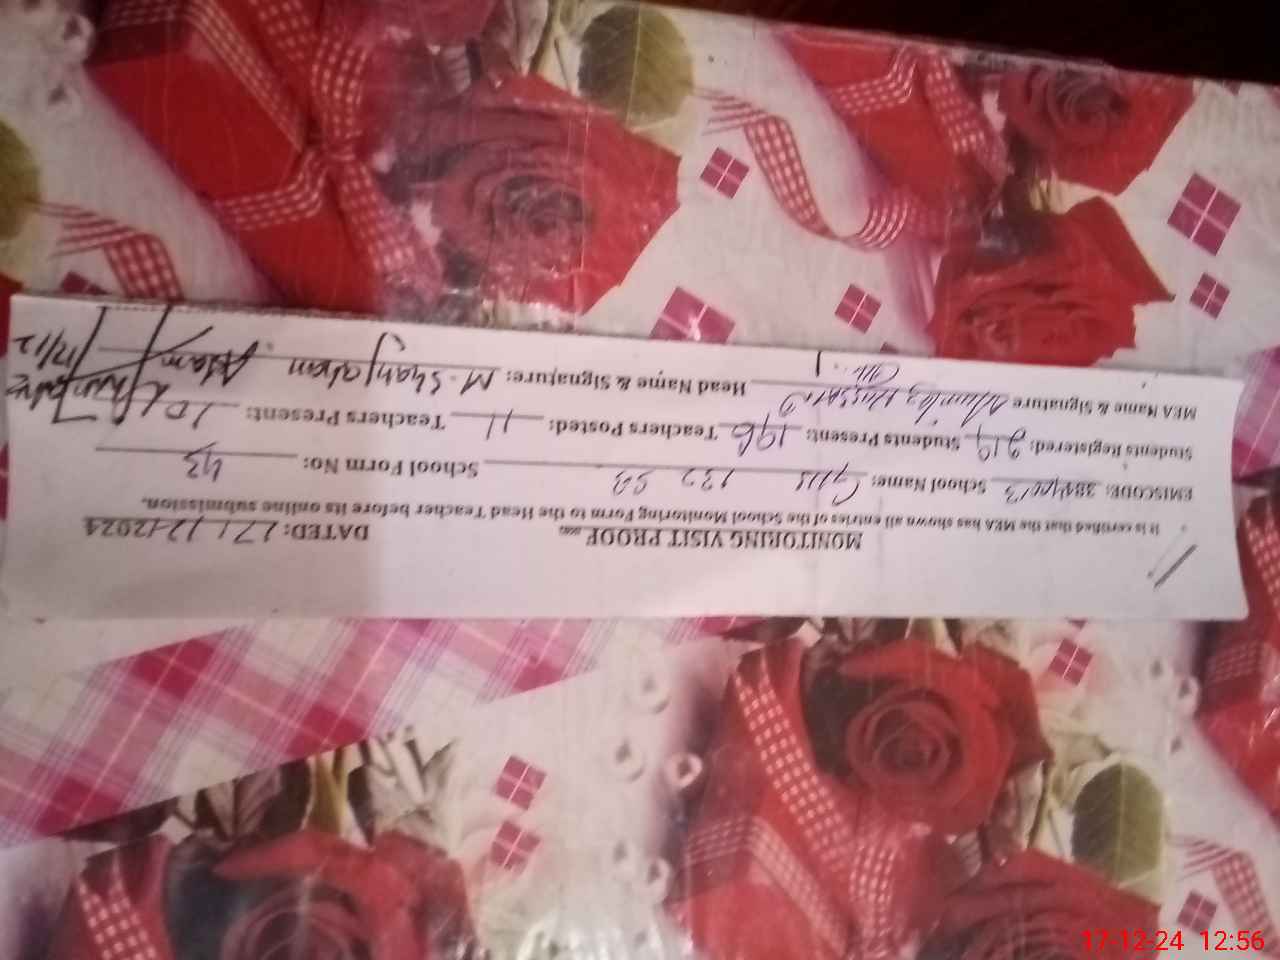 MONITORING VISIT PROOF DATED: 17/12/2024
It is certified that the MEA has shown all entries of the School Monitoring Form to the Head Teacher before its online submission.
EMISCODE: School Name: GHS 132 SB School Form No: 43
Students Registered: 219 Students Present: 196 Teachers Posted: 11 Teachers Present: 10
MEA Name & Signature Mumtaz Hussain Head Name & Signature: M. Shahjahan Aslam
17/12
17-12-24 12:56